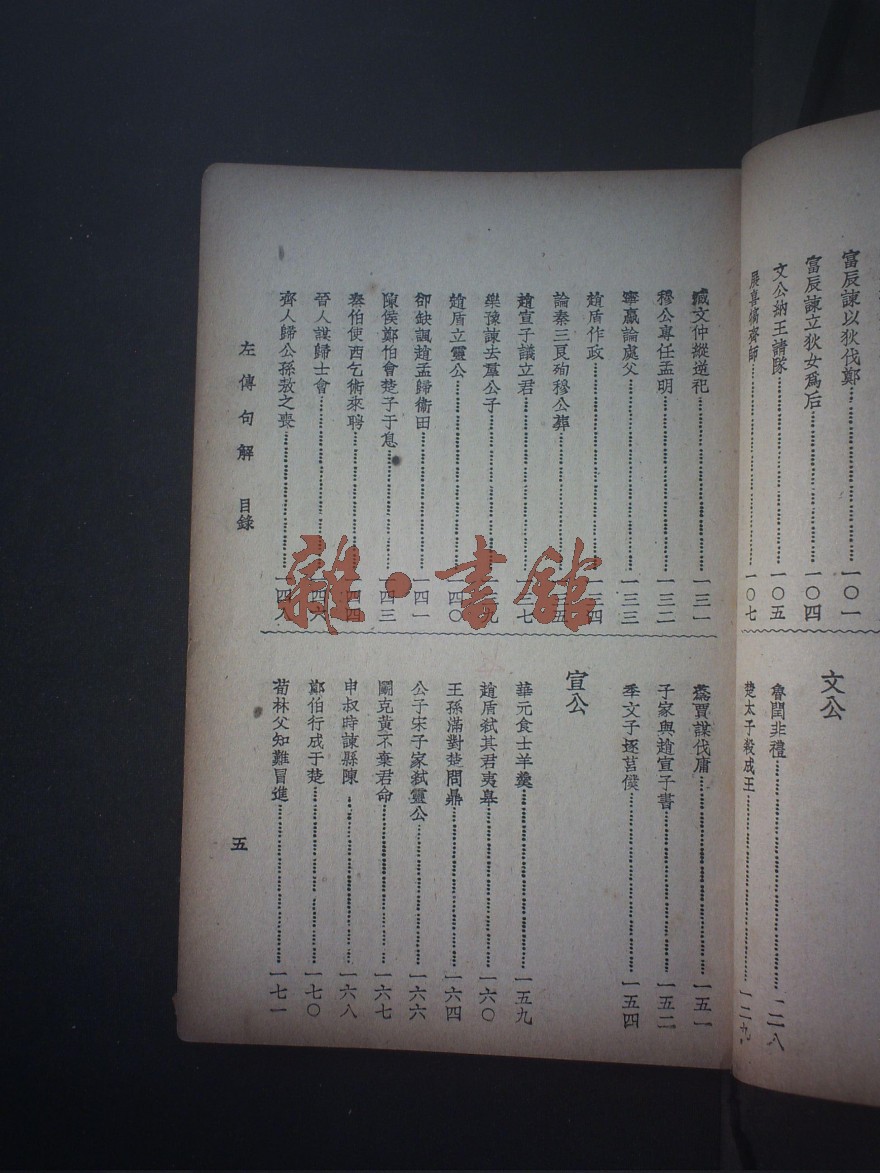 富辰諫以狄伐鄭……一〇一
富辰諫立狄女爲后……一〇四
文公納王請隧……一〇五
展喜犒齊師……一〇七
文公
魯閏非禮……一二八
楚太子殺成王……一二九
臧文仲縱逆祀……一三一
穆公專任孟明……一三二
甯嬴論處父……一三三
趙盾作政……一三四
論秦三良殉穆公葬……一三五
趙宣子議立君……一三七
樂豫諫去羣公子……一三九
趙盾立靈公……一四〇
郤缺諷趙孟歸衞田……一四一
陳侯鄭伯會楚子于息……一四三
秦伯使西乞術來聘……一四四
晉人謀歸士會……一四六
齊人歸公孫敖之喪……一四八
蒍賈謀伐庸……一五一
子家與趙宣子書……一五二
季文子逐莒僕……一五四
宣公
華元食士羊羹……一五九
趙盾弑其君夷皋……一六〇
王孫滿對楚問鼎……一六四
公子宋子家弑靈公……一六六
鬭克黃不棄君命……一六七
申叔時諫縣陳……一六八
鄭伯行成于楚……一七〇
荀林父知難冒進……一七一
左傳句解 目錄
五
雜·書館